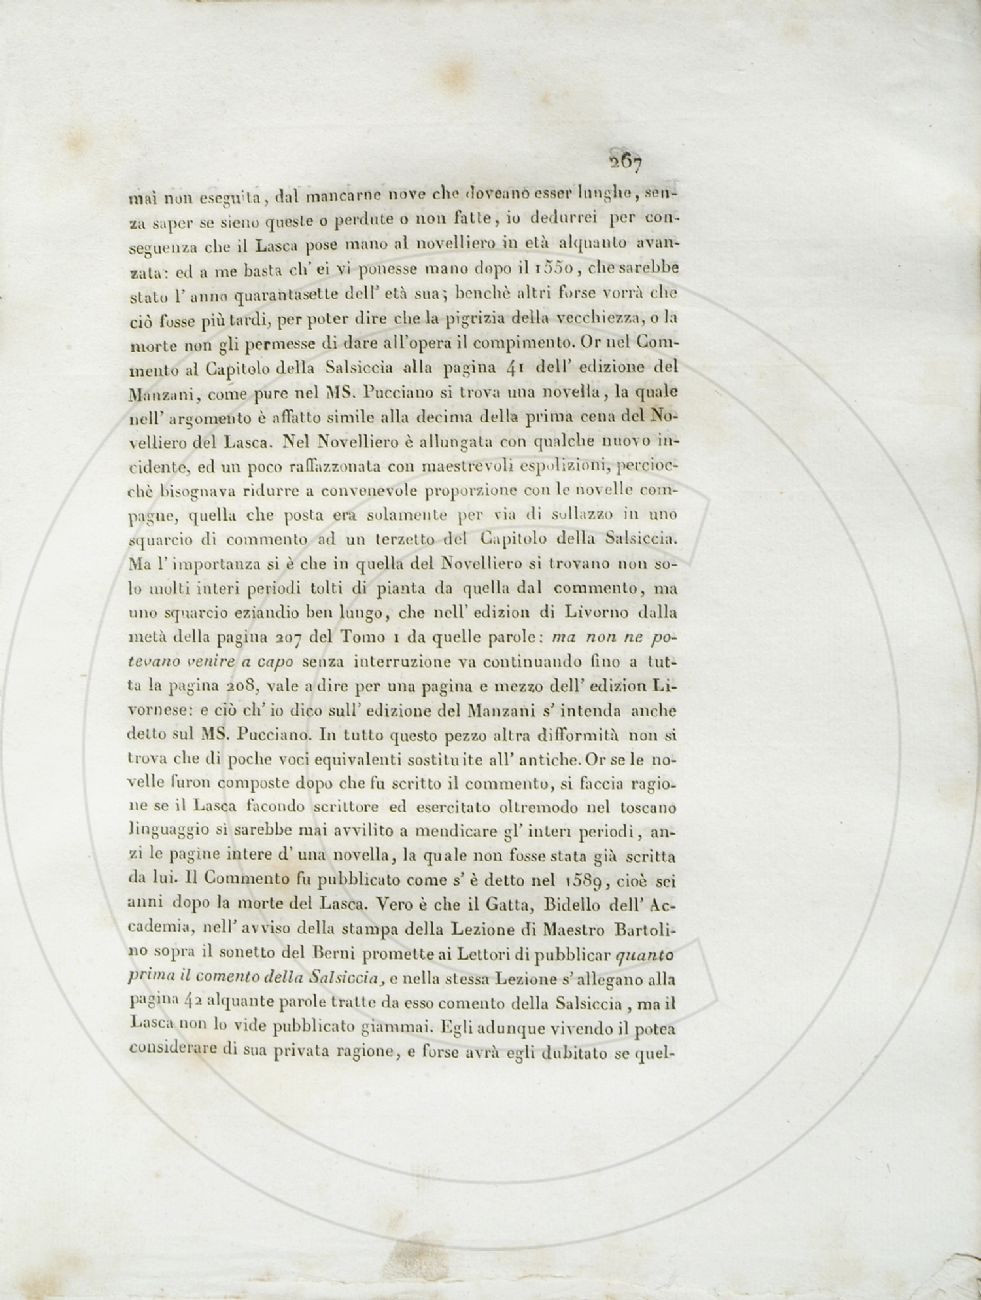 267
mai non eseguita, dal mancarne nove che doveano esser lunghe, sen-
za saper se sieno queste o perdute o non fatte, io dedurrei per con-
seguenza che il Lasca pose mano al novelliero in età alquanto avan-
zata: ed a me basta ch' ei vi ponesse mano dopo il 1550, che sarebbe
stato l' anno quarantasette dell' età sua; benchè altri forse vorrà che
ciò fosse più tardi, per poter dire che la pigrizia della vecchiezza, o la
morte non gli permesse di dare all'opera il compimento. Or nel Com-
mento al Capitolo della Salsiccia alla pagina 41 dell' edizione del
Manzani, come pure nel MS. Pucciano si trova una novella, la quale
nell' argomento è affatto simile alla decima della prima cena del No-
velliero del Lasca. Nel Novelliero è allungata con qualche nuovo in-
cidente, ed un poco raffazzonata con maestrevoli espolizioni, percioc-
chè bisognava ridurre a convenevole proporzione con le novelle com-
pagne, quella che posta era solamente per via di sollazzo in uno
squarcio di commento ad un terzetto del Capitolo della Salsiccia.
Ma l' importanza si è che in quella del Novelliero si trovano non so-
lo molti interi periodi tolti di pianta da quella dal commento, ma
uno squarcio eziandio ben lungo, che nell' edizion di Livorno dalla
metà della pagina 207 del Tomo 1 da quelle parole: ma non ne po-
tevano venire a capo senza interruzione va continuando fino a tut-
ta la pagina 208, vale a dire per una pagina e mezzo dell' edizion Li-
vornese: e ciò ch' io dico sull' edizione del Manzani s' intenda anche
detto sul MS. Pucciano. In tutto questo pezzo altra difformità non si
trova che di poche voci equivalenti sostituite all' antiche. Or se le no-
velle furon composte dopo che fu scritto il commento, si faccia ragio-
ne se il Lasca facondo scrittore ed esercitato oltremodo nel toscano
linguaggio si sarebbe mai avvilito a mendicare gl' interi periodi, an-
zi le pagine intere d' una novella, la quale non fosse stata già scritta
da lui. Il Commento fu pubblicato come s' è detto nel 1589, cioè sei
anni dopo la morte del Lasca. Vero è che il Gatta, Bidello dell' Ac-
cademia, nell' avviso della stampa della Lezione di Maestro Bartoli-
no sopra il sonetto del Berni promette ai Lettori di pubblicar quanto
prima il comento della Salsiccia, e nella stessa Lezione s' allegano alla
pagina 42 alquante parole tratte da esso comento della Salsiccia, ma il
Lasca non lo vide pubblicato giammai. Egli adunque vivendo il potea
considerare di sua privata ragione, e forse avrà egli dubitato se quel-